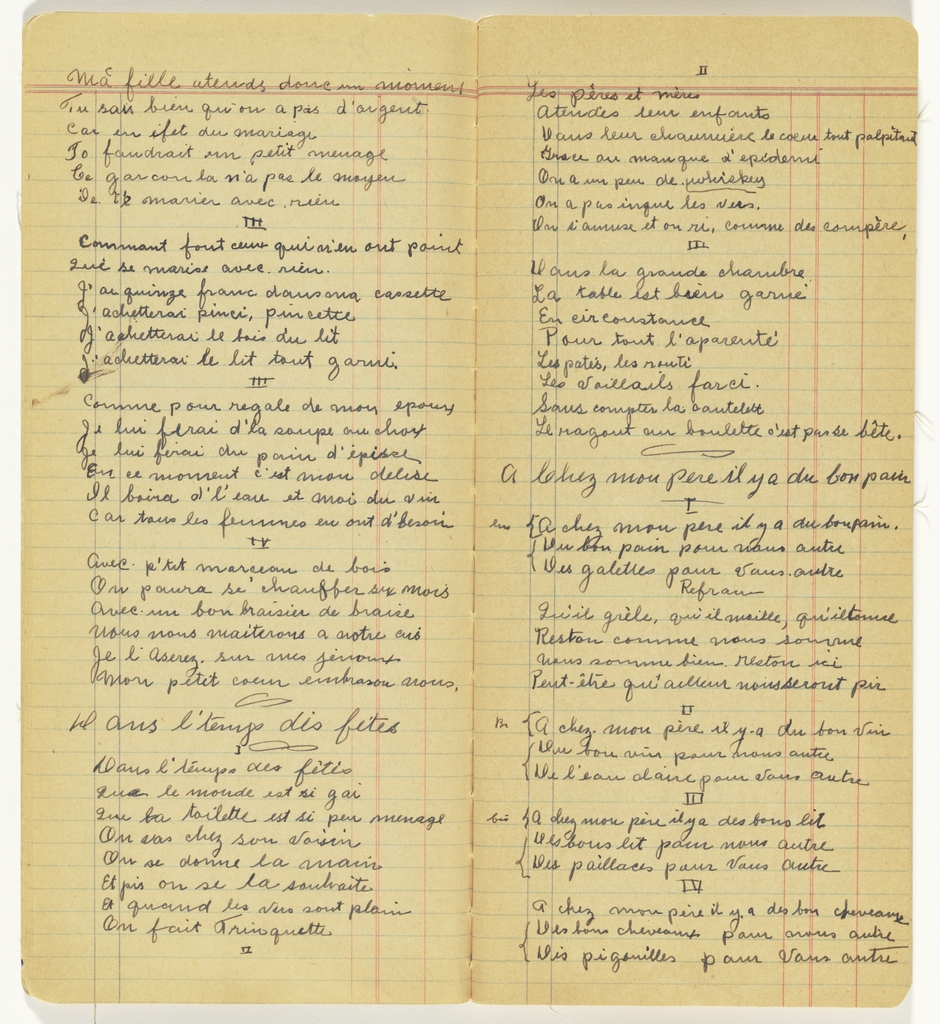 Mâ fille atends donc un moment
Tu sais bien qu'on a pas d'argent
Car en ifet du mariage
To faudrait un petit menage
Ce garcon la n'a pas le moyen
De te marier avec rien
III
Commant font ceux qui n'en ont point
Qui se marise avec rien.
J'ai quinze franc dans ma cassette
J'achetterai pinci, pincette
J'achetterai le bois du lit
J'achetterai le lit tout garni.
III
Comme pour regale de mon epoux
Je lui ferai d'la soupe au choux
Je lui ferai du pain d'épisse
En ce moment c'est mon delise
Il boira d'l'eau et moi du vin
Car tous les femmes en ont d'besoin
IV
Avec p'tit marceau de bois
On poura se chauffer six mois
Avec un bon braisier de braise
Nous nous maiterons a notre
Je l'Aserez sur mes jenoux
Mon petit coeur embrason nous,
Dans l'temps dis fêtes
I
Dans l'temps des fêtes
Que le monde est si gai
Que la toilette est si peu menage
On vas chez son voisin
On se donne la main
Et pis on se la souhaite
Et quand les vers sont plain
On fait Trinquette
II
II
Les pères et mères
Atendes leur enfants
Dans leur chaumière le coeur tout palpitant
Grace au manque d'epidemi
On a un peu de whiskey
On a pas ingue les vers.
On s'amuse et on ri, comme des compère,
III
Dans la grande chambre
La table est bien garni
En circonstance
Pour tout l'aparenté
Les patés, les routi
Les vollails farci.
Sans compter la cautelett
Le ragout au boulette c'est pas se bête.
A Chez mon pere il y a du bon pain
I
bis {A chez mon père il y a du bon pain.
{Du bon pain pour nous autre
{Des galettes pour vous autre
Refrain
Qu'il grêle, qu'il mouille, qu'il tonne
Reston comme nous somme
Nous somme bien reston ici
Peut-être qu'ailleur nous seront pir
II
Bis {A chez mon père il y a du bon vin
{Du bon vin pour nous autre
{De l'eau claire pour vous autre
III
bis {A chez mon père il y a des bons lit
{Des bons lit pour nous autre
{Des paillaces pour vous autre
IV
A chez mon père il y a des bon cheveaux
{Des bons cheveaux pour nous autre
{Dis pigouilles pour vous autre